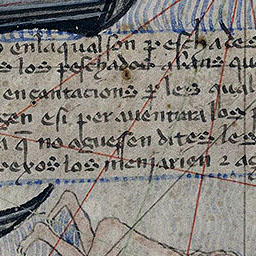 enlaqual son peschades
los peschados grans que
encantacions p les quals
gen e si per aventura los p
a q̃ no aguessen dites les
eexos los menjarien z aq